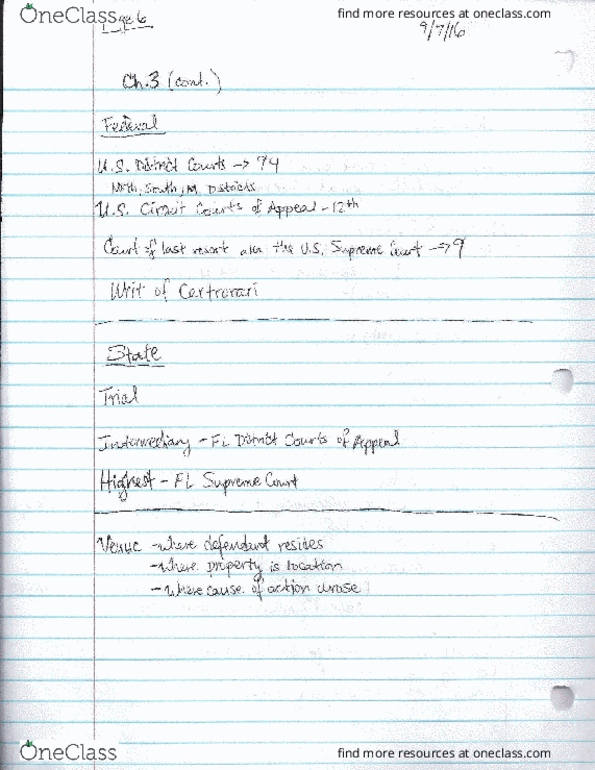 OneClass
find more resources at oneclass.com
Page 6
9/7/16
Ch.3 (cont.)
Federal
U.S. District Courts -> 94
North, South, M. Districts
U.S. Circuit Courts of Appeal - 12th
Court of last resort aka the U.S. Supreme Court -> 9
Writ of Certrorari
State
Trial
Intermediary - FL District Courts of Appeal
Highest - FL Supreme Court
Venue - where defendent resides
- where property is location
- where cause of action arose
OneClass
find more resources at oneclass.com